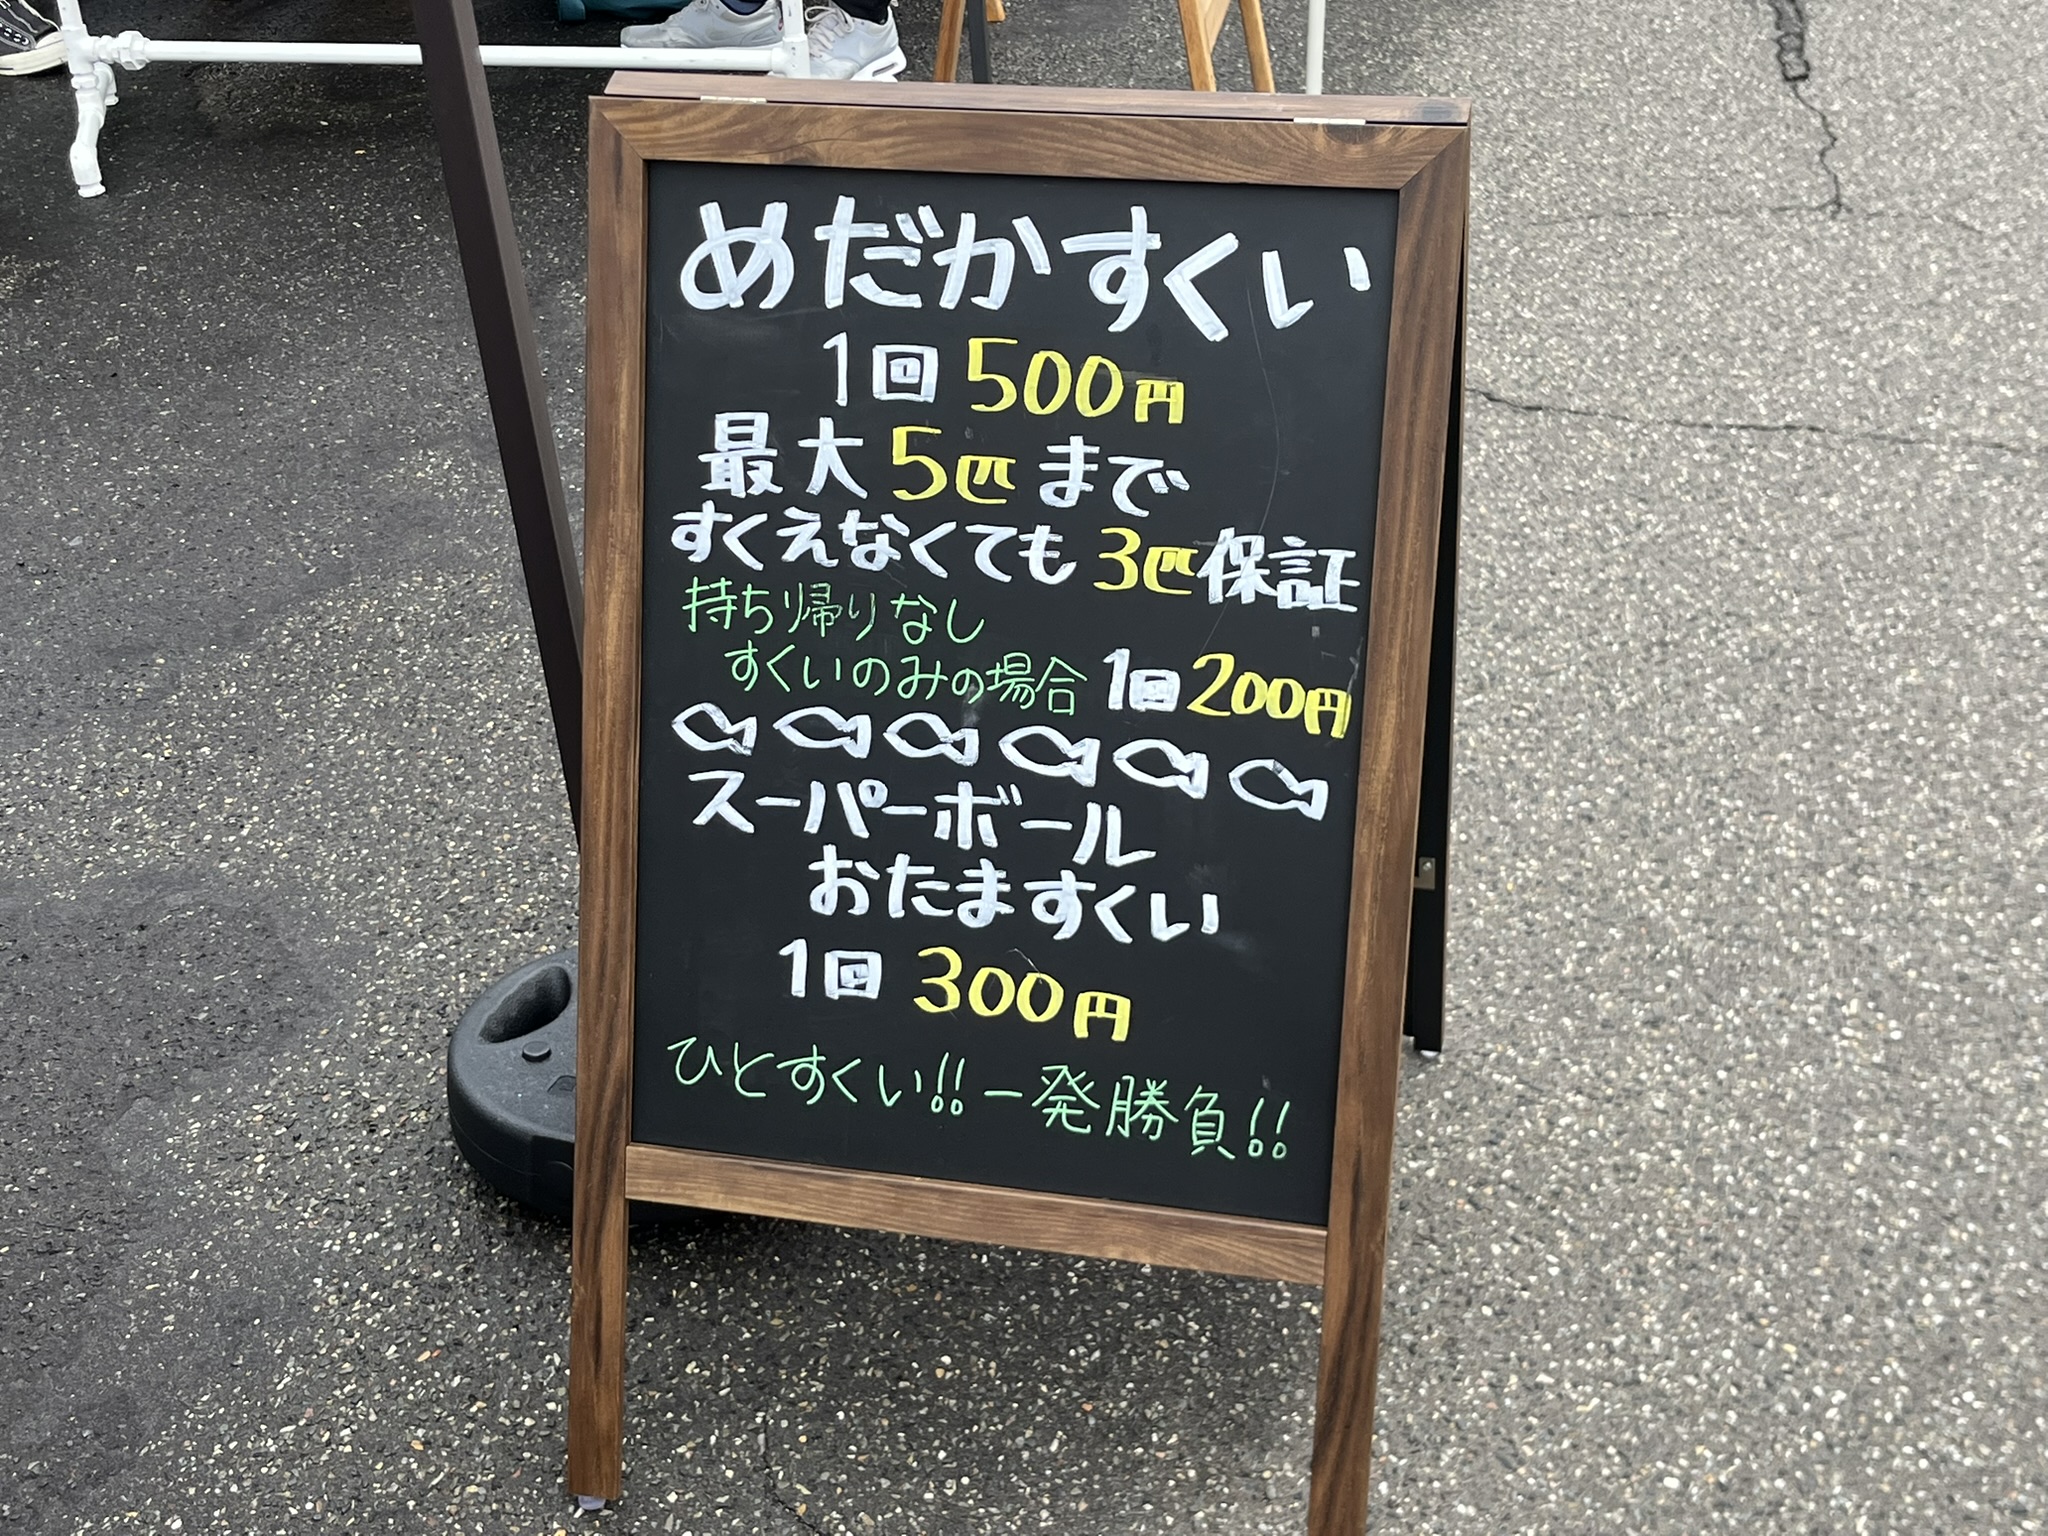 めだかすくい
1回 500円
最大 5匹 まで
すくえなくても 3匹保証
持ち帰りなし
すくいのみの場合 1回 200円
スーパーボール
おたますくい
1回 300円
ひとすくい!! 一発勝負!!